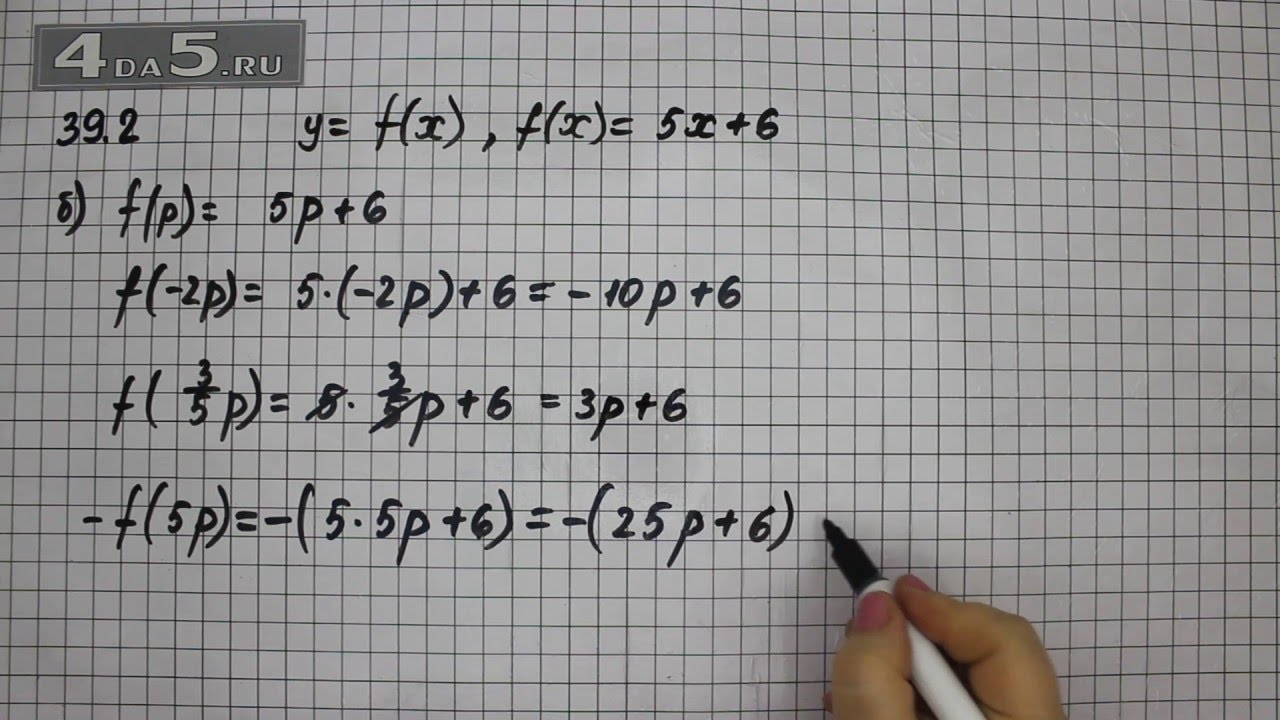 4DA5.RU
39.2 y = f(x), f(x) = 5x + 6
б) f(p) = 5p + 6
f(-2p) = 5·(-2p) + 6 = -10p + 6
f(3/5 p) = 5·3/5 p + 6 = 3p + 6
-f(5p) = -(5·5p + 6) = -(25p + 6)